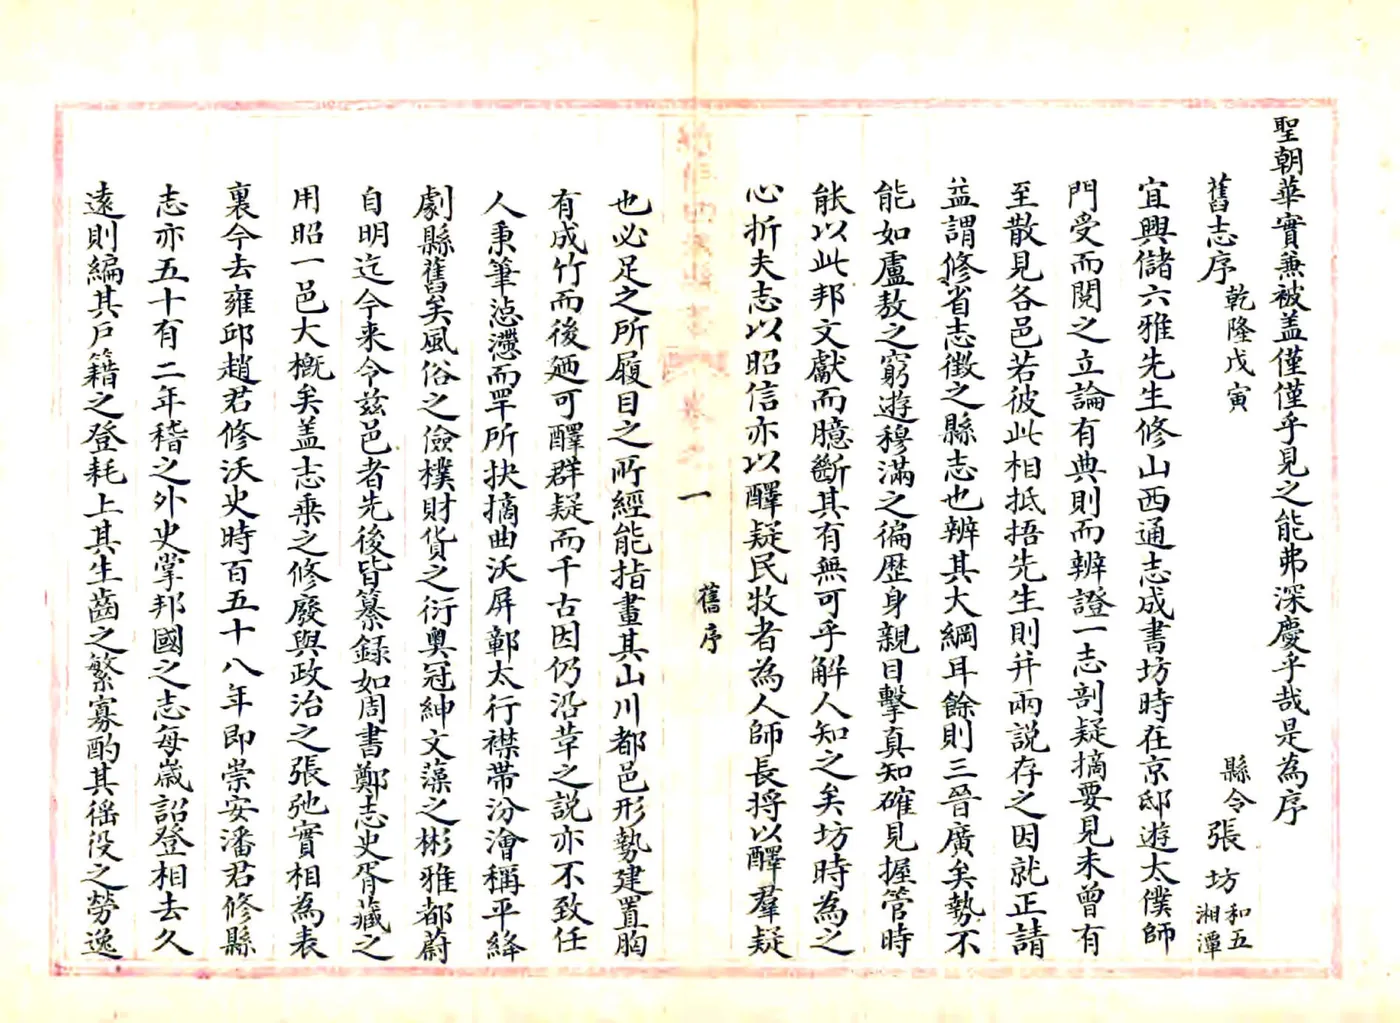 聖朝華實兼被盖僅僅乎見之能弗深慶乎哉是為序
舊志序 乾隆戊寅 縣令張坊 和五 湘潭
宜興儲六雅先生修山西通志成書坊時在京邸遊太僕師
門受而閱之立論有典則而辨證一志剖疑摘要見未曾有
至散見各邑若彼此相抵捂先生則并兩説存之因就正請
益謂修省志徵之縣志也辨其大綱耳餘則三晉廣矣勢不
能如盧敖之窮遊穆滿之徧歴身親目擊真知確見握管時
能以此邦文獻而臆斷其有無可乎解人知之矣坊時為之
心折夫志以昭信亦以醳疑民牧者為人師長将以醳羣疑
一 舊序
也必足之所履目之所經能指畫其山川都邑形勢建置胸
有成竹而後廼可醳群疑而千古因仍沿草之説亦不致任
人秉筆惉懘而罕所抉摘曲沃屏鄣太行襟帶汾澮稱平絳
劇縣舊矣風俗之儉樸財貨之衍奥冠紳文藻之彬雅都蔚
自明迄今来令兹邑者先後皆纂録如周書鄭志史胥藏之
用昭一邑大概矣盖志乗之修廢與政治之張弛實相為表
裏今去雍邱趙君修沃史時百五十八年即崇安潘君修縣
志亦五十有二年稽之外史掌邦國之志每歲詔登相去久
遠則編其戸籍之登耗上其生齒之繁寡酌其徭役之勞逸